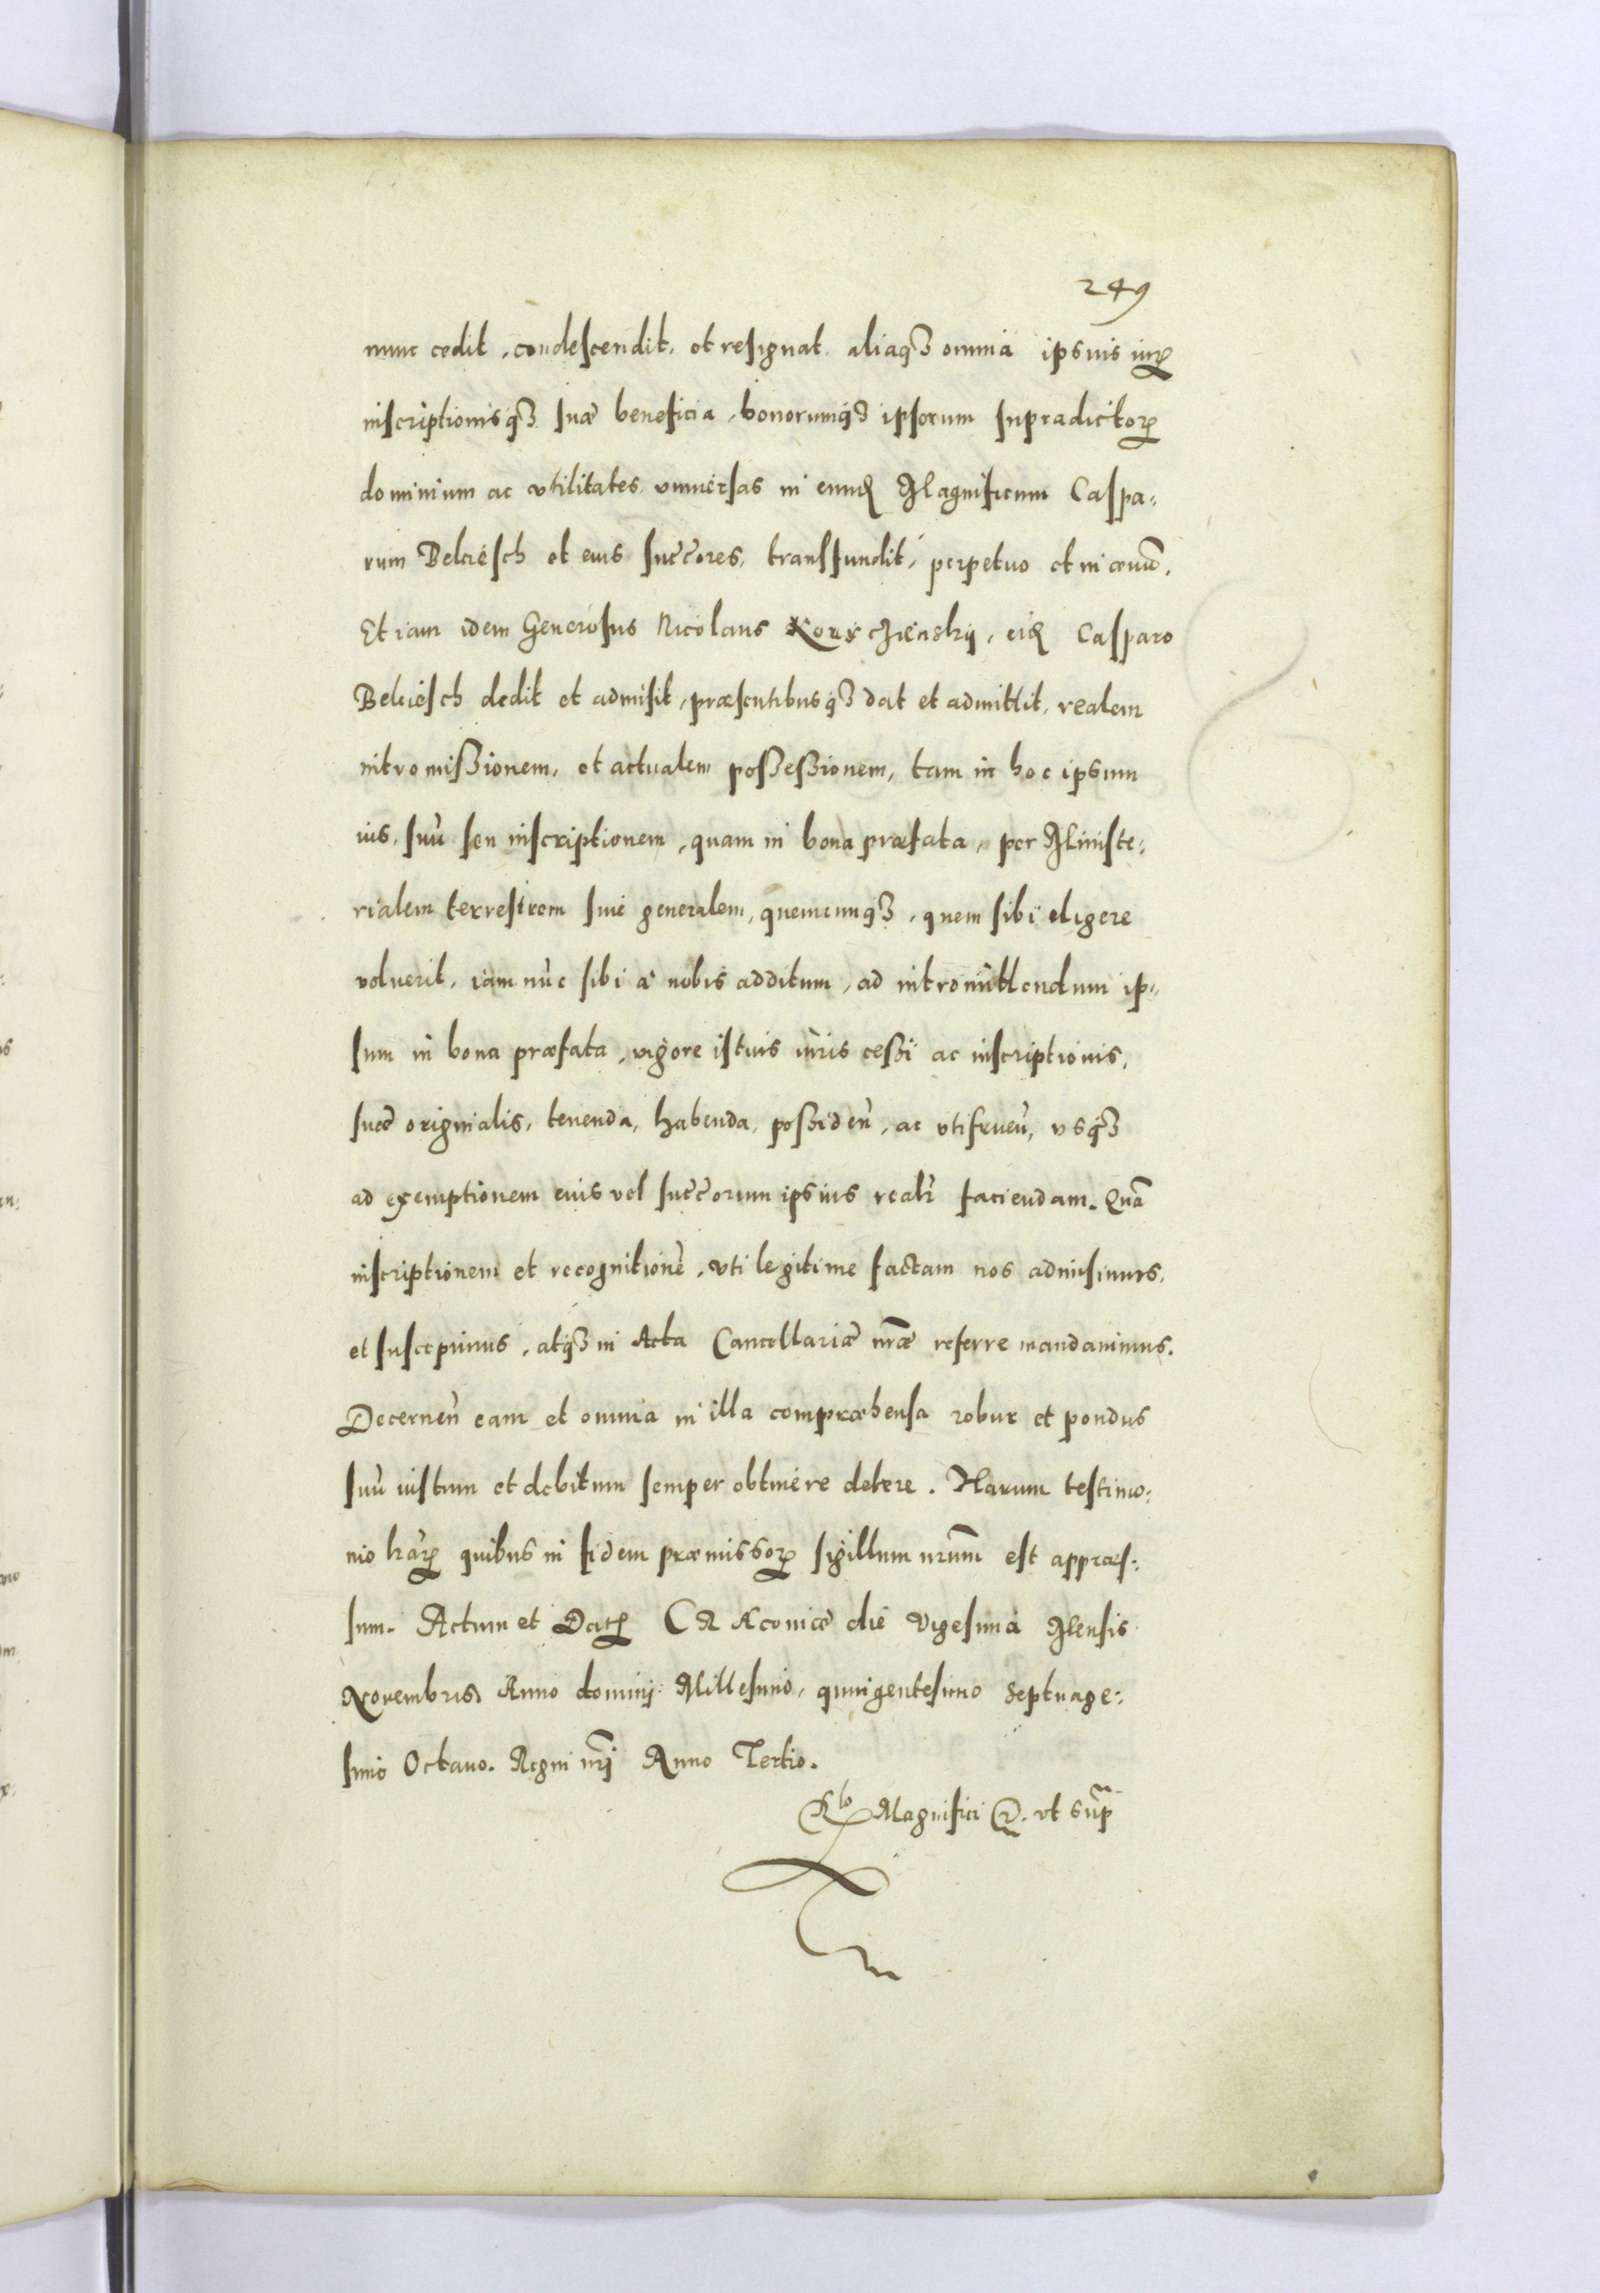 249
nunc cedit, condescendit, et resignat, aliaqꝫ omnia ipsius iurꝭ
inscriptionisqꝫ suæ beneficia, bonorumqꝫ ipsorum supradictorꝭ
dominium ac vtilitates vniuersas in eund. Magnificum Caspa:
rum Bekiesch et eius succ̃ores, transfundit, perpetuo et in æuũ.
Et iam idem Generosus Nicolaus, eid. Casparo
Bekiesch dedit et admisit, præsentibusqꝫ dat et admittit, realem
intromißionem, et actualem poßeßionem, tam in hoc ipsum
ius, suũ seu inscriptionem, quam in bona præfata, per Ministe:
rialem terrestrem siue generalem, quemcunqꝫ, quem sibi eligere
voluerit, iam nũc sibi a nobis additum, ad intromittendum ip:
sum in bona præfata, vigore istius iuris ceßi ac inscriptionis,
suæ originalis, tenenda, habenda, poßideñ, ac vtifrueñ, vsqꝫ
ad exemptionem eius vel succ̃orum ipsius realr̃ faciendam. Quã
inscriptionem et recognitionẽ, vti legitime factam nos admisimus,
et suscepimus, atqꝫ in Acta Cancellariæ nr̃æ referre mandauimus.
Decerneñ eam et omnia in illa compræhensa robur et pondus
suũ iustum et debitum semper obtinere debere. Harum testimo:
nio lr̃arꝭ quibus in fidem præmissorꝭ sigillum nr̃um est appræs:
sum. Actum et Datꝭ die Vigesima Mensis
Nouembris Anno domini Millesimo, quingentesimo Septuage:
simo Octauo. Regni nr̃i Anno Tertio.
Rlo Magnifici &. vt sup̃